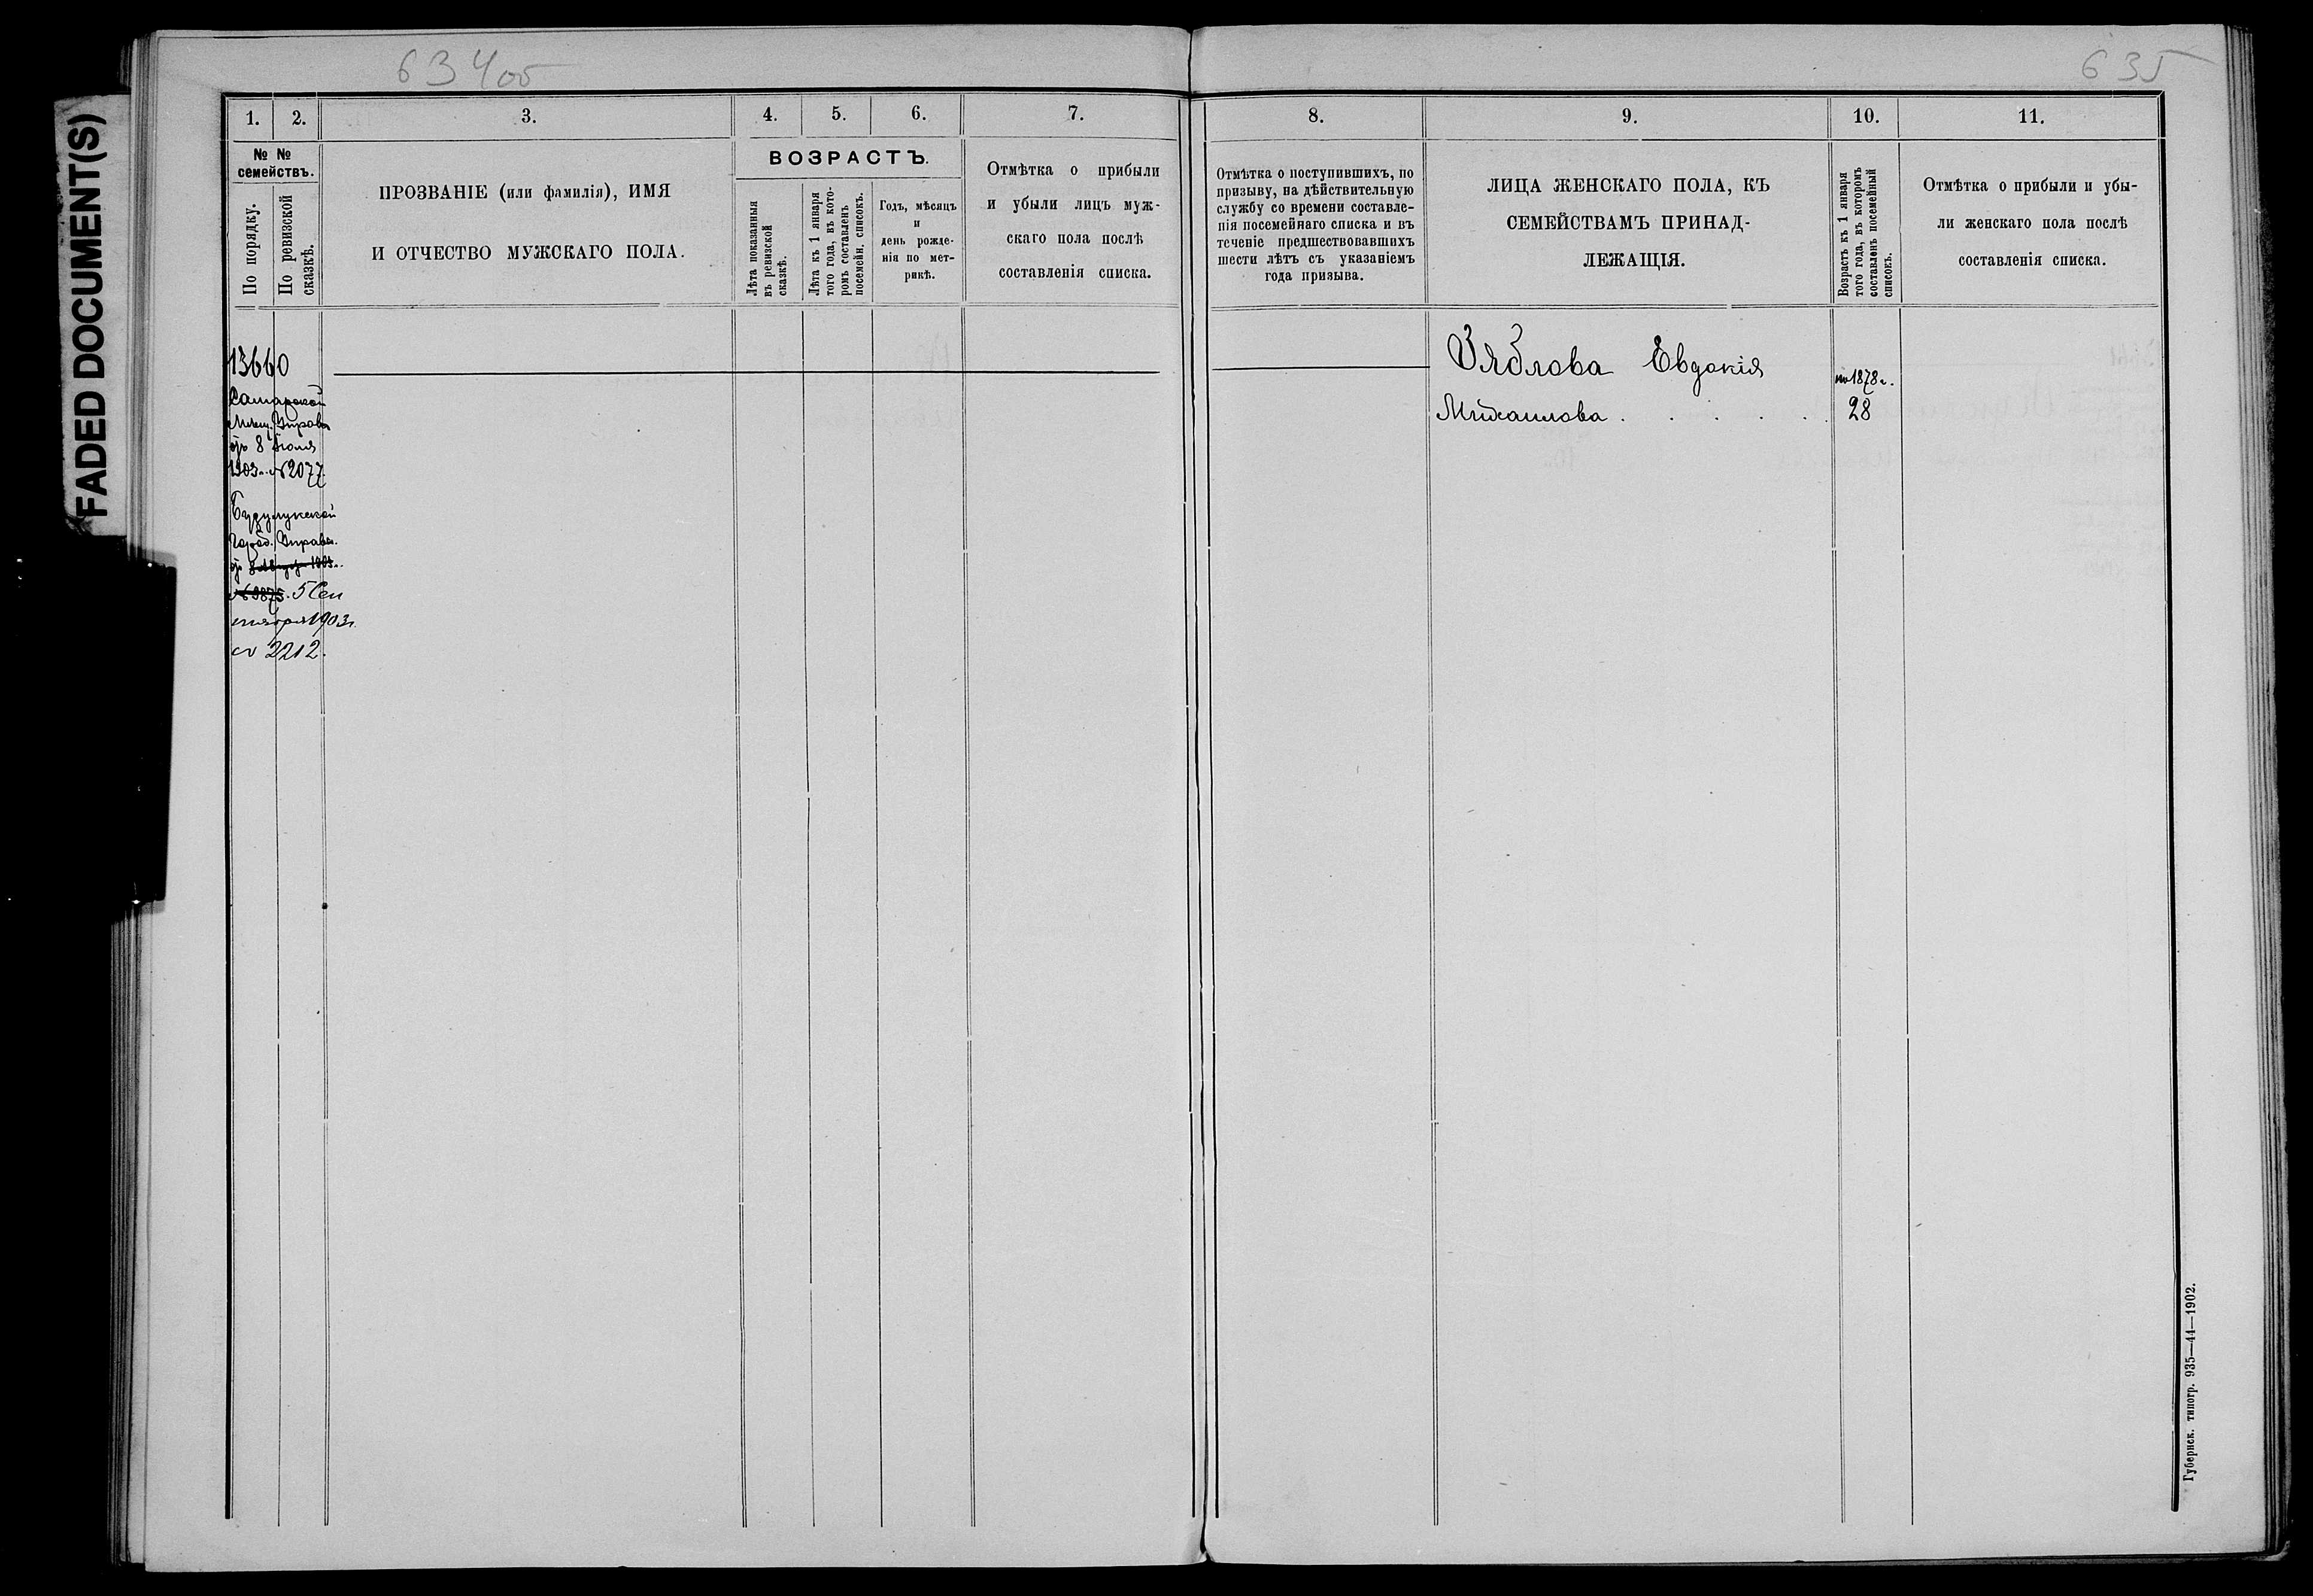 FADED DOCUMENT(S)
634об
635
1. 2. 3. 4. 5. 6. 7.
№ №
семействъ.
По порядку.
По ревизской
сказкѣ.
ПРОЗВАНІЕ (или фамилія), ИМЯ
И ОТЧЕСТВО МУЖСКАГО ПОЛА.
ВОЗРАСТЪ.
Лѣта показанныя
въ ревизской
сказкѣ.
Лѣта къ 1 января
того года, въ кото-
ромъ составленъ
посемейн. списокъ.
Годъ, мѣсяцъ
и
день рожде-
нія по мет-
рикѣ.
Отмѣтка о прибыли
и убыли лицъ муж-
скаго пола послѣ
составленія списка.
8. 9. 10. 11.
Отмѣтка о поступившихъ, по
призыву, на дѣйствительную
службу со времени составле-
нія посемейнаго списка и въ
теченіе предшествовавшихъ
шести лѣтъ съ указаніемъ
года призыва.
ЛИЦА ЖЕНСКАГО ПОЛА, КЪ
СЕМЕЙСТВАМЪ ПРИНАД-
ЛЕЖАЩІЯ.
Возрастъ къ 1 января
того года, въ которомъ
составленъ посемейный
списокъ.
Отмѣтка о прибыли и убы-
ли женскаго пола послѣ
составленія списка.
13660
Самарской
Мѣщ. Управы
отъ 8 Іюля
1903 г. № 2077
Бузулукской
Город. Управы.
отъ
№ 9875. 5 Сен
тября 1903 г.
№ 2212.
Зяблова Евдокія
Михаилова . . . . .
1878 г.
28
Губернск. типогр. 935—44—1902.